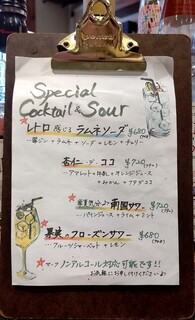 Special
Cocktail & Sour
レトロ感じる ラムネソーダ ¥680
ラムネ + ソーダ + レモン + チェリー
杏仁 ココ ¥720
アマレット + 牛乳 + オレンジジュース
+ みかん + ナタデココ
南国サワー ¥720
パインジュース + ライム + ミント
果実のフローズンサワー ¥680
フルーツシャーベット + レモン
ノンアルコール対応可能です!!
お気軽にお申し付けくださいませ